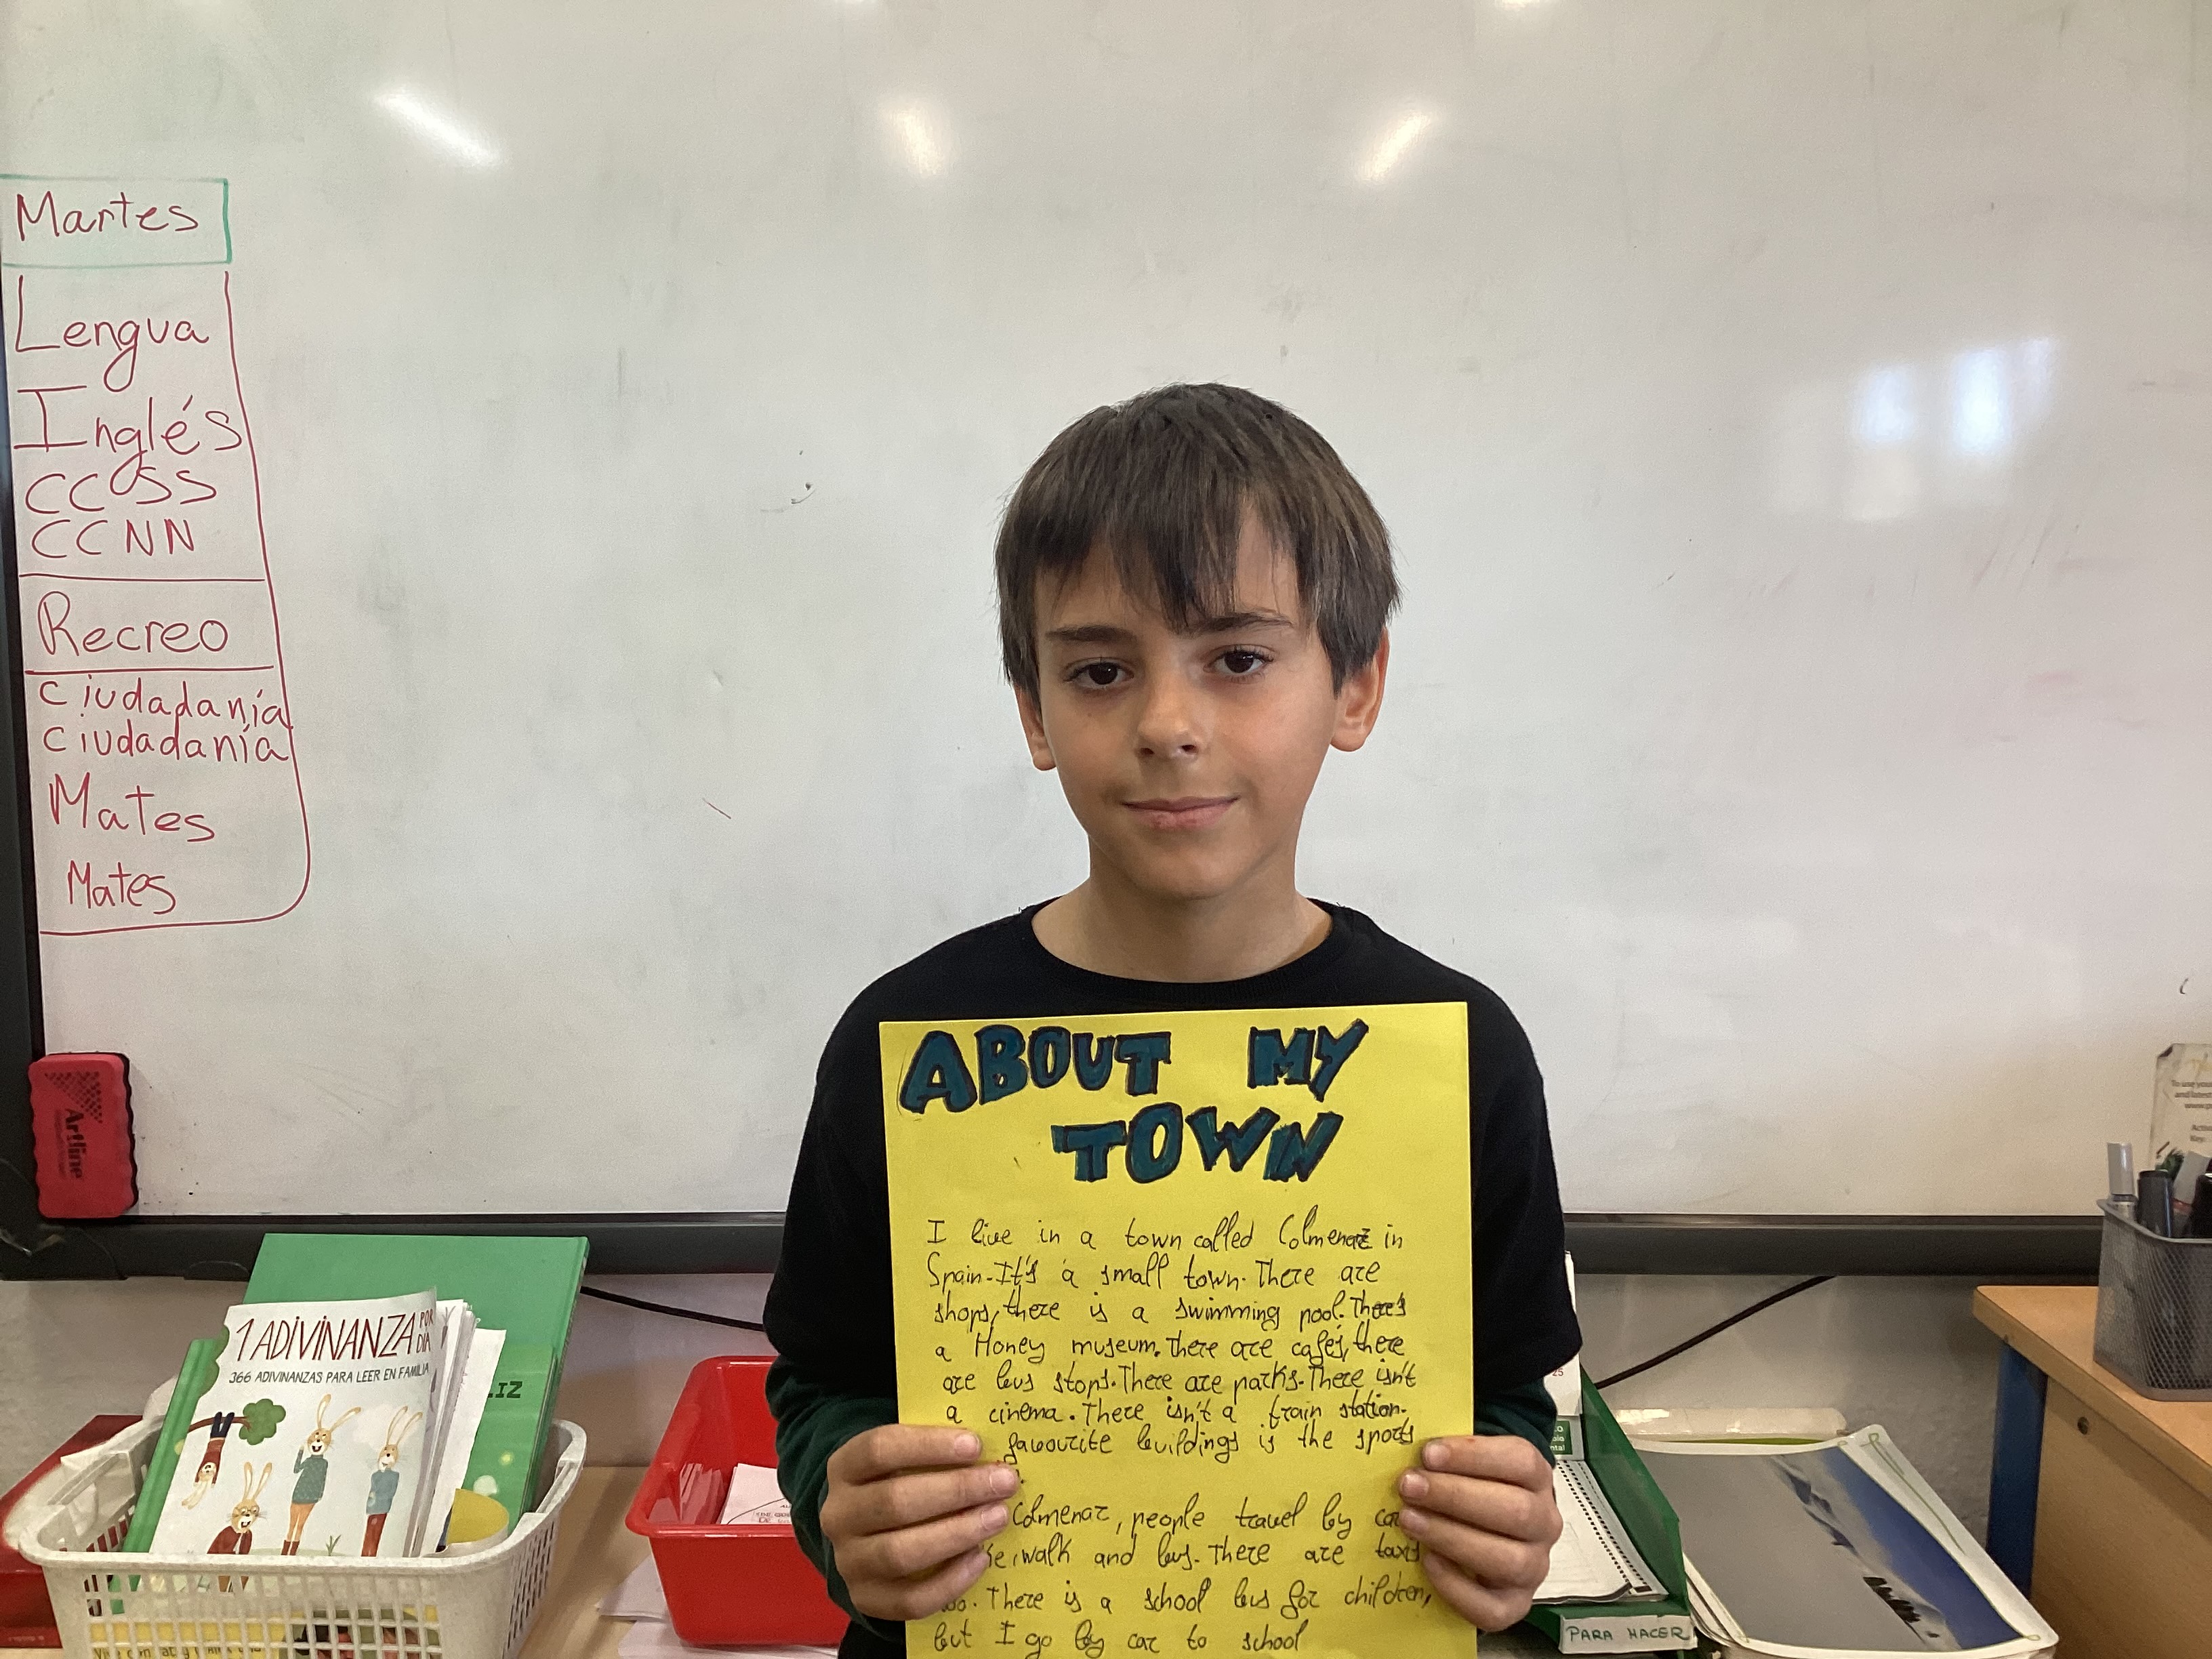 Martes
Lengua
Inglés
CCSS
CCNN
Recreo
Ciudadanía
Ciudadanía
Mates
Mates
Artline
1 ADIVINANZA POR DÍA
366 ADIVINANZAS PARA LEER EN FAMILIA
ABOUT MY
TOWN
I live in a town called Colmenar in
Spain. It's a small town. There are
shops, there is a swimming pool. There's
a Honey museum. There are cafés, there
are bus stops. There are parks. There isn't
a cinema. There isn't a train station.
favourite buildings is the sports
Colmenar, people travel by
walk and bus. There are taxis
There is a school bus for children,
but I go by car to school
PARA HACER